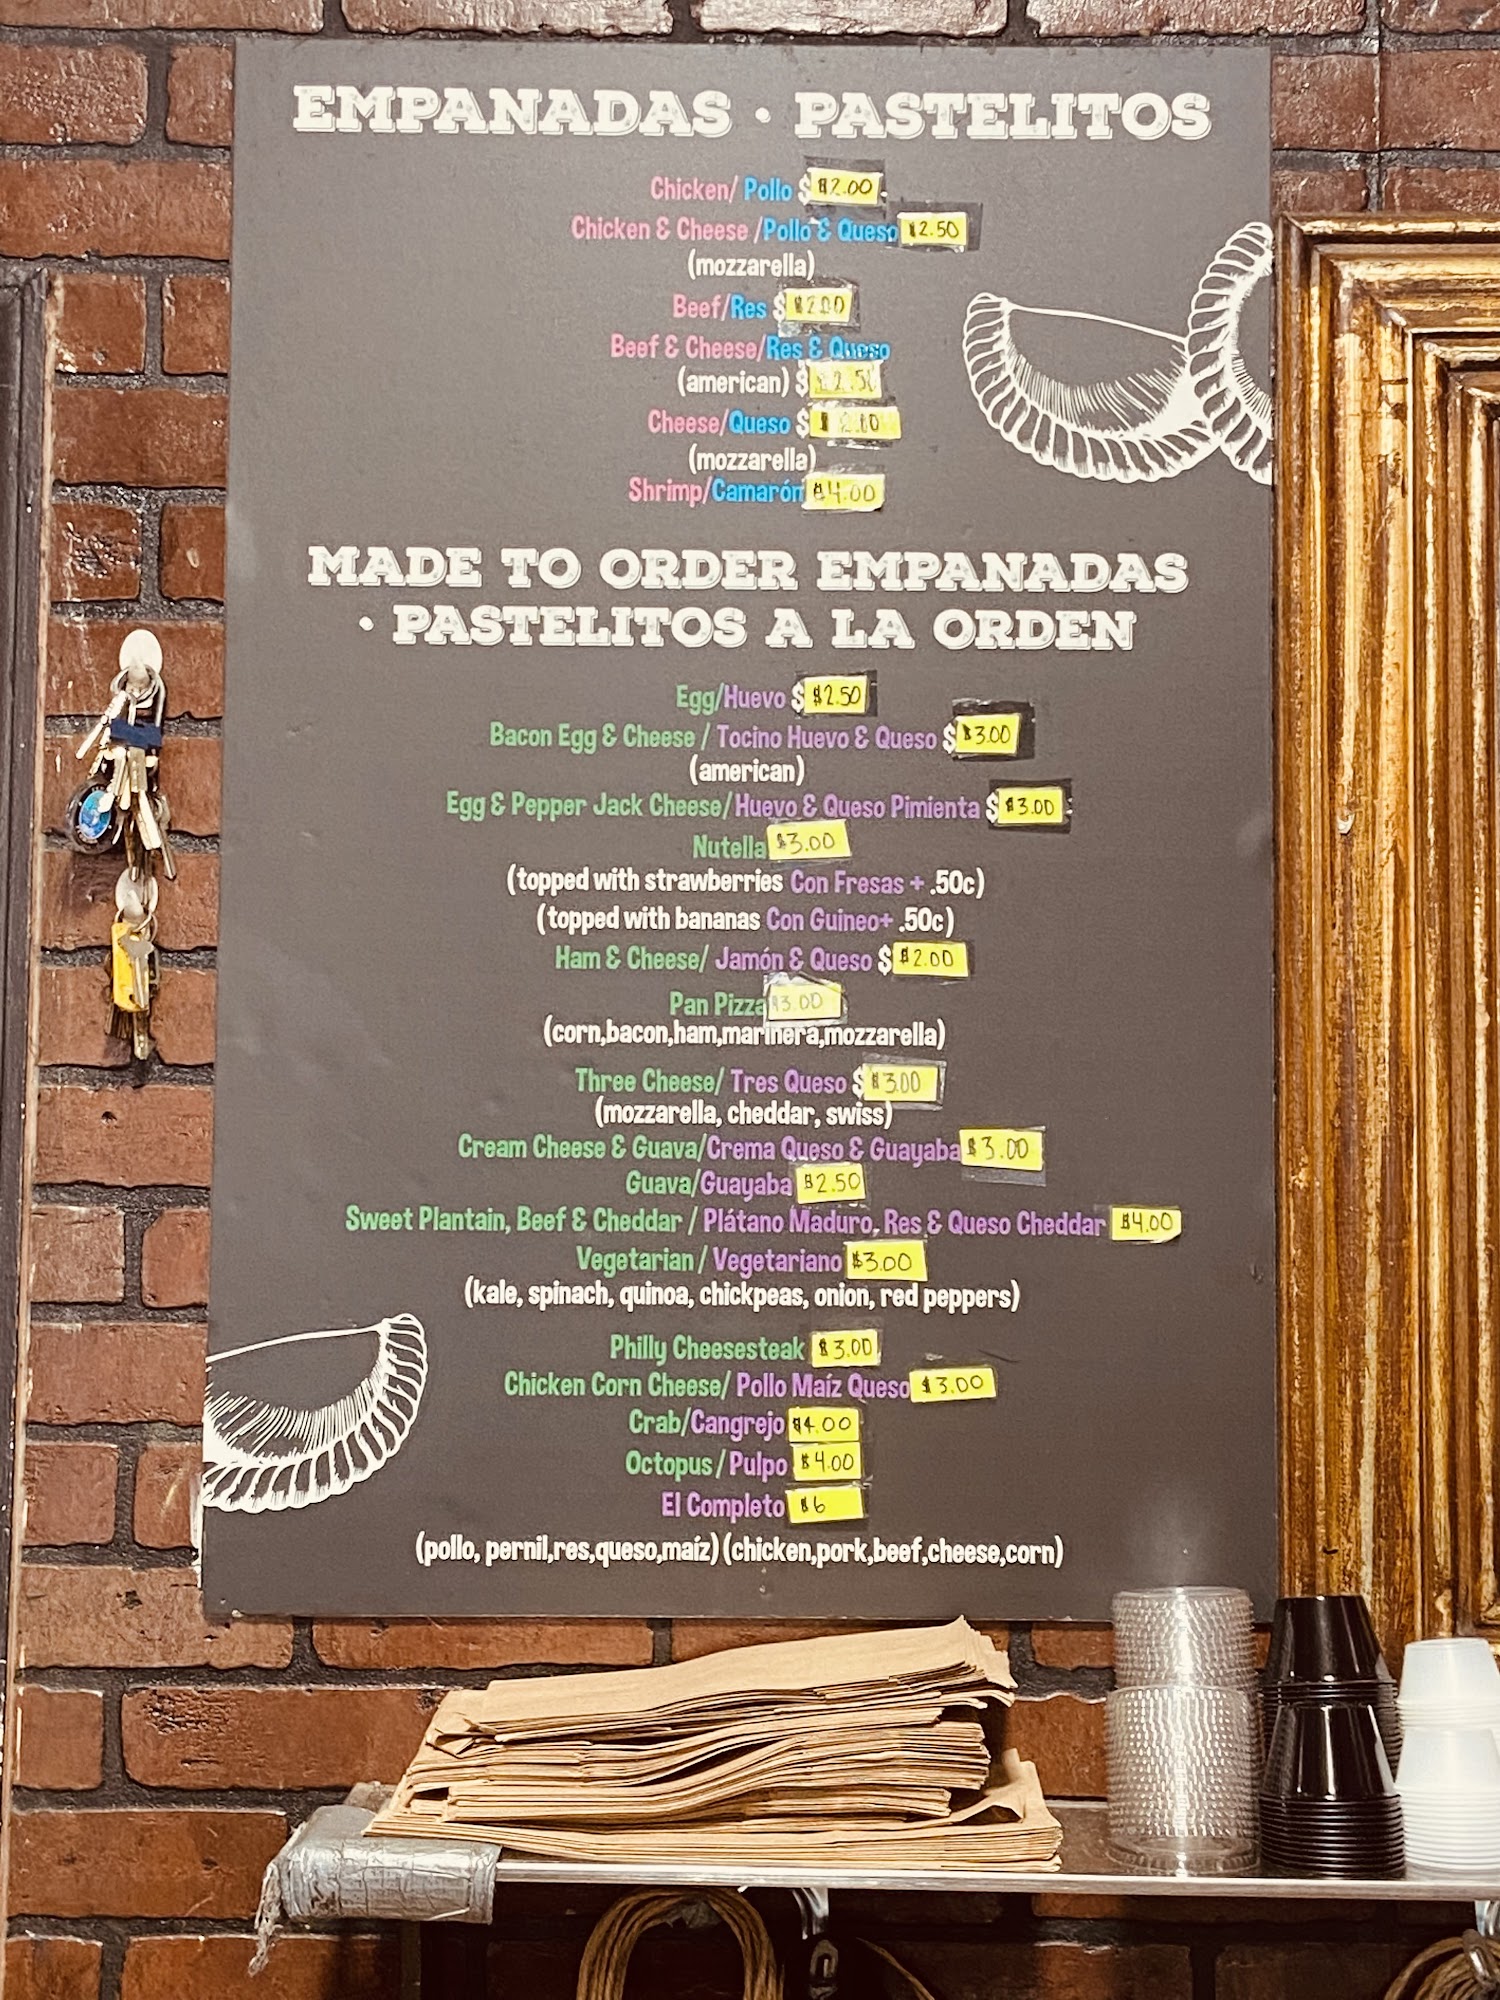 EMPANADAS • PASTELITOS
Chicken/ Pollo $ $2.00
Chicken & Cheese /Pollo & Queso $2.50
(mozzarella)
Beef/Res $ $2.00
Beef & Cheese/Res & Queso
(american) $ 2.50
Cheese/Queso $
(mozzarella)
Shrimp/Camarón $4.00
MADE TO ORDER EMPANADAS
• PASTELITOS A LA ORDEN
Egg/Huevo $ $2.50
Bacon Egg & Cheese / Tocino Huevo & Queso $ $3.00
(american)
Egg & Pepper Jack Cheese/Huevo & Queso Pimienta $ $3.00
Nutella $3.00
(topped with strawberries Con Fresas + .50c)
(topped with bananas Con Guineo+ .50c)
Ham & Cheese/ Jamón & Queso $ $2.00
Pan Pizza $3.00
(corn,bacon,ham,marinera,mozzarella)
Three Cheese/ Tres Queso $ $3.00
(mozzarella, cheddar, swiss)
Cream Cheese & Guava/Crema Queso & Guayaba $3.00
Guava/Guayaba $2.50
Sweet Plantain, Beef & Cheddar / Plátano Maduro, Res & Queso Cheddar $4.00
Vegetarian / Vegetariano $3.00
(kale, spinach, quinoa, chickpeas, onion, red peppers)
Philly Cheesesteak $3.00
Chicken Corn Cheese/ Pollo Maíz Queso $3.00
Crab/Cangrejo $4.00
Octopus/ Pulpo $4.00
El Completo $6
(pollo, pernil,res,queso,maíz) (chicken,pork,beef,cheese,corn)